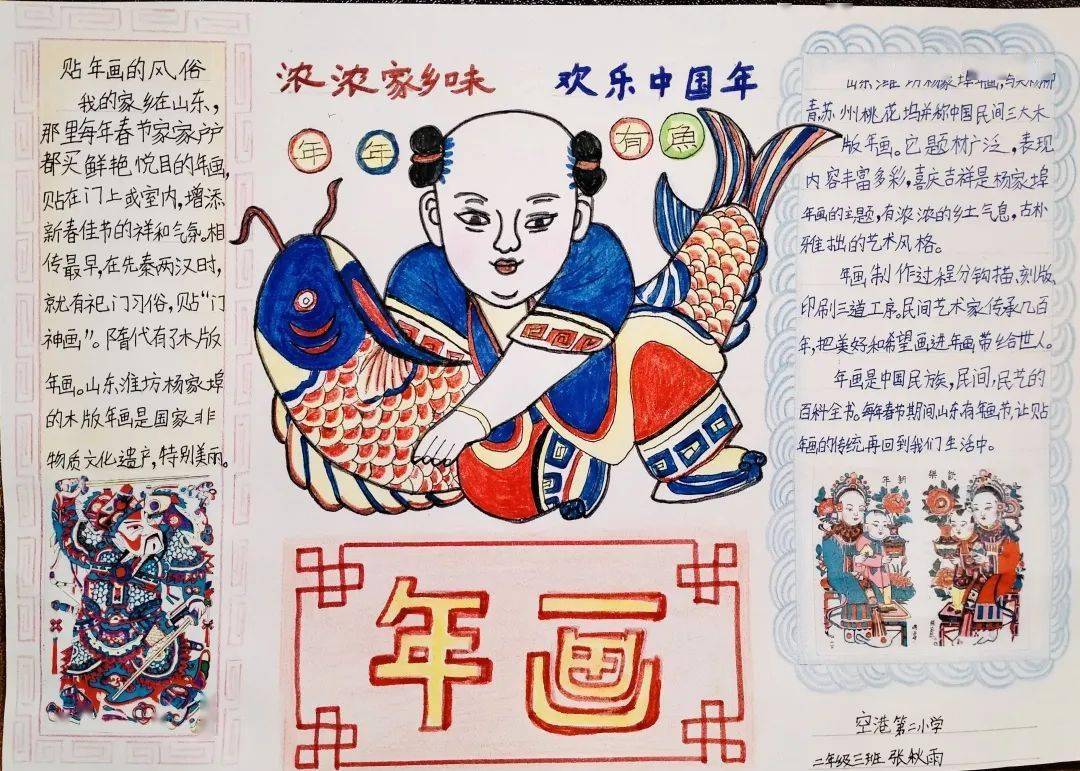 浓浓家乡味 欢乐中国年
年 年 有 魚
贴年画的风俗
我的家乡在山东,
那里每年春节家家户户
都买鲜艳悦目的年画,
贴在门上或室内,增添
新春佳节的祥和气氛。相
传最早,在先秦两汉时,
就有祀门习俗,贴“门
神画”。隋代有了木版
年画。山东潍坊杨家埠
的木版年画是国家非
物质文化遗产,特别美丽。
山东潍坊杨家埠年画,与天杨柳
青苏州桃花坞并称中国民间三大木
版年画。它题材广泛,表现
内容丰富多彩,喜庆吉祥是杨家埠
年画的主题,有浓浓的乡土气息,古朴
雅拙的艺术风格。
年画制作过程分钩描、刻版、
印刷三道工序。民间艺术家传承几百
年,把美好和希望画进年画带给世人。
年画是中国民族,民间,民艺的
百科全书。每年春节期间山东有年画节,让贴
年画的传统再回到我们生活中。
年新 樂歡
年画
空港第二小学
二年级三班 张秋雨